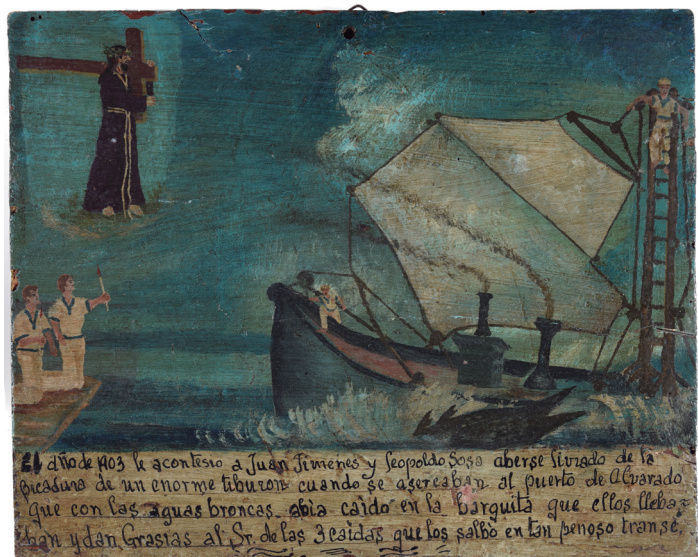 El año de 1903 le acontesio a Juan Jimenes y Leopoldo Sosa aberse livrado de la
picadura de un enorme tiburon cuando se asercaban al puerto de Alvarado
que con las aguas broncas abia caido en la barquita que ellos lleba-
ban y dan Grasias al Sr. de las 3 caidas que los salbó en tan penoso transe.